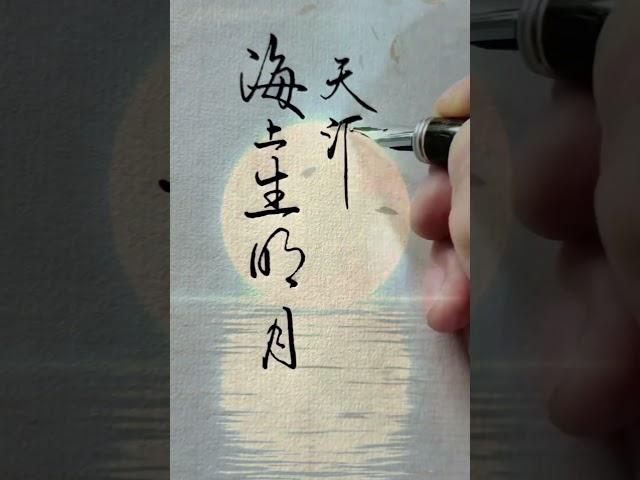 海上生明月
天